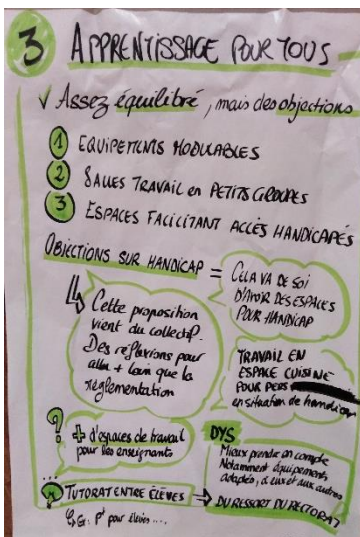 3 APPRENTISSAGE POUR TOUS
√ Assez équilibré, mais des objections
1 EQUIPEMENTS MODULABLES
2 SALLES TRAVAIL en PETITS GROUPES
3 ESPACES FACILITANT ACCÈS HANDICAPÉS
OBJECTIONS SUR HANDICAP =
CELA VA DE SOI
D'AVOIR DES ESPACES
POUR HANDICAP
Cette proposition
vient du collectif.
Des réflexions pour
aller + loin que la
réglementation
TRAVAIL EN
ESPACE CUISINE
POUR PERS
en situation de handicap
? + d'espaces de travail
pour les enseignants
DYS
Mieux prendre en compte
Notamment équipements
adaptés, à eux et aux autres
TUTORAT ENTRE ÉLÈVES → DU RESSORT DU RECTORAT
pour élèves ....